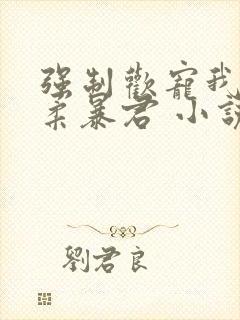 强制歡寵我
柔暴君 小說
劉君良